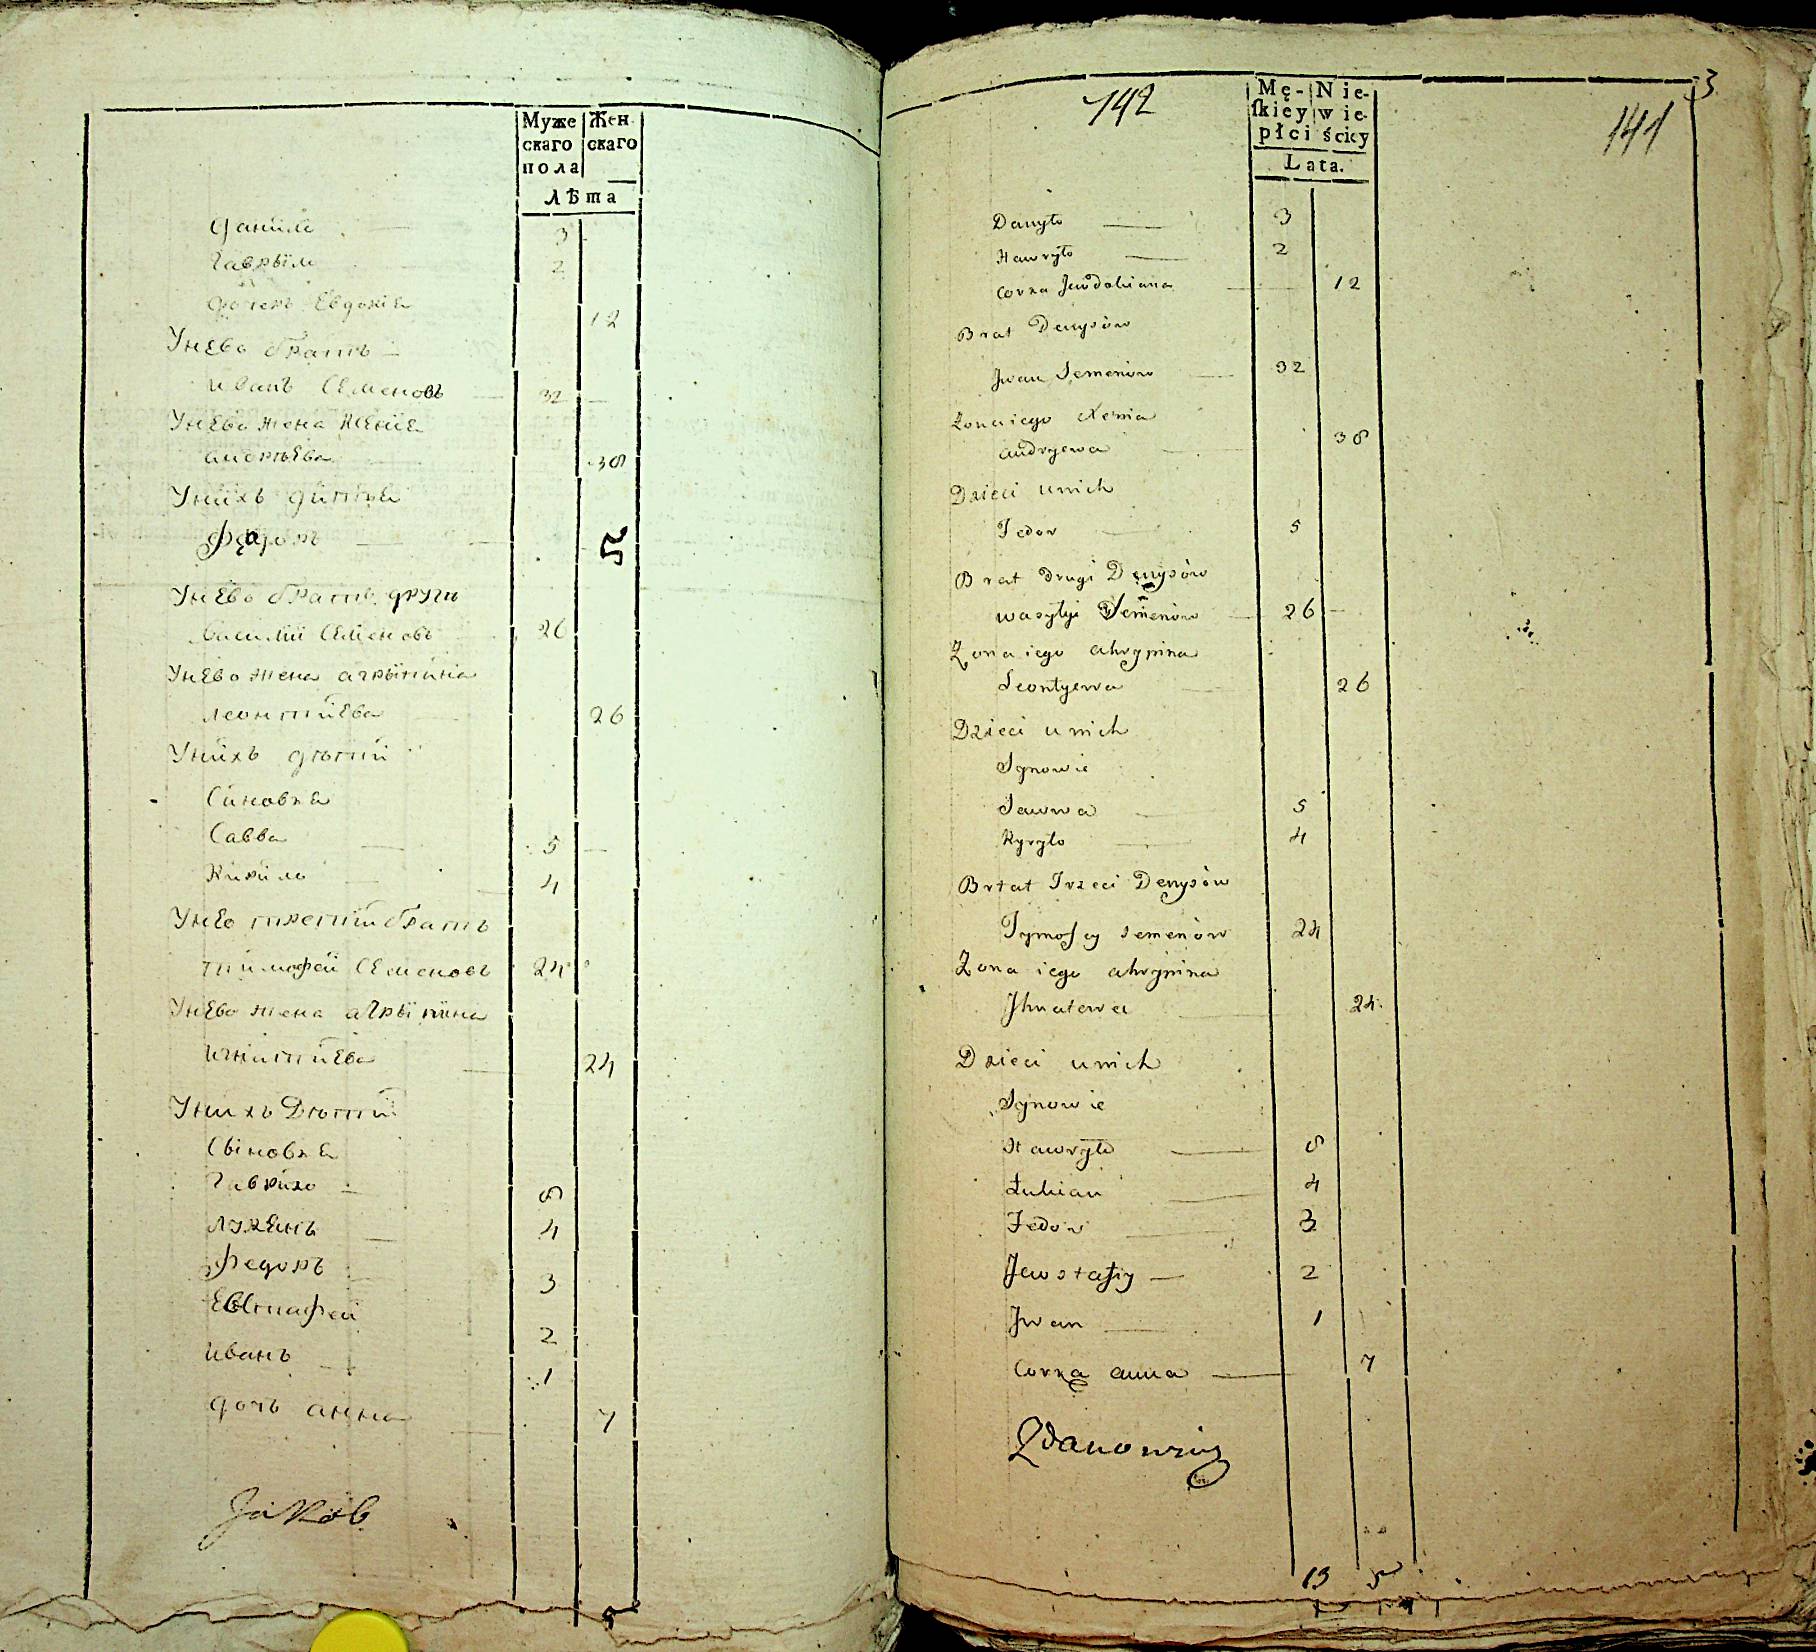 Муже Жен
скаго скаго
пола
Лѣта
Данило 3
Гаврыло 2
Дочеръ Евдокіа 12
Унево братъ
Иванъ Семеновъ 32
Унево жена Ксеніе
андрѣева 38
Унихъ дитки
Федоръ 5
Унево братъ други
василий Семеновъ 26
Унево жена агрыпина
леонтийева 26
Унихъ дѣтий
Синовье
Савва 5
Кирило 4
Унево третий братъ
тимофей Семеновъ 24
Унево жена агрыпина
игнатийева 24
Унихъ Дѣтий
Сыновье
Гаврило 8
лукянъ 4
Федоръ 3
Евстафей 2
иванъ 1
дочъ анна 7
Jakób
5
3
142
141
Mę- Nie-
ſkiéy wie-
płci ściéy
Lata.
Danyło 3
Hawryło 2
Corka Jewdokiana 12
Brat Denysów
Jwan Semenów 32
Zona iego Xenia
andryewa 38
Dzieci unich
Fedor 5
Brat drugi Denysów
wasylyi Semenów 26
Zona iego ahrypina
Leontyewa 26
Dzieci unich
Synowie
Sawwa 5
Kyryło 4
Brtat Trzeci Denysów
Tymofey Semenów 24
Zona iego ahrypina
Jhnatewa 24
Dzieci unich
Synowie
Hawryło 8
Łukian 4
Fedor 3
Jewstafiy 2
Jwan 1
Corka anna 7
Zdanowicz
13 5